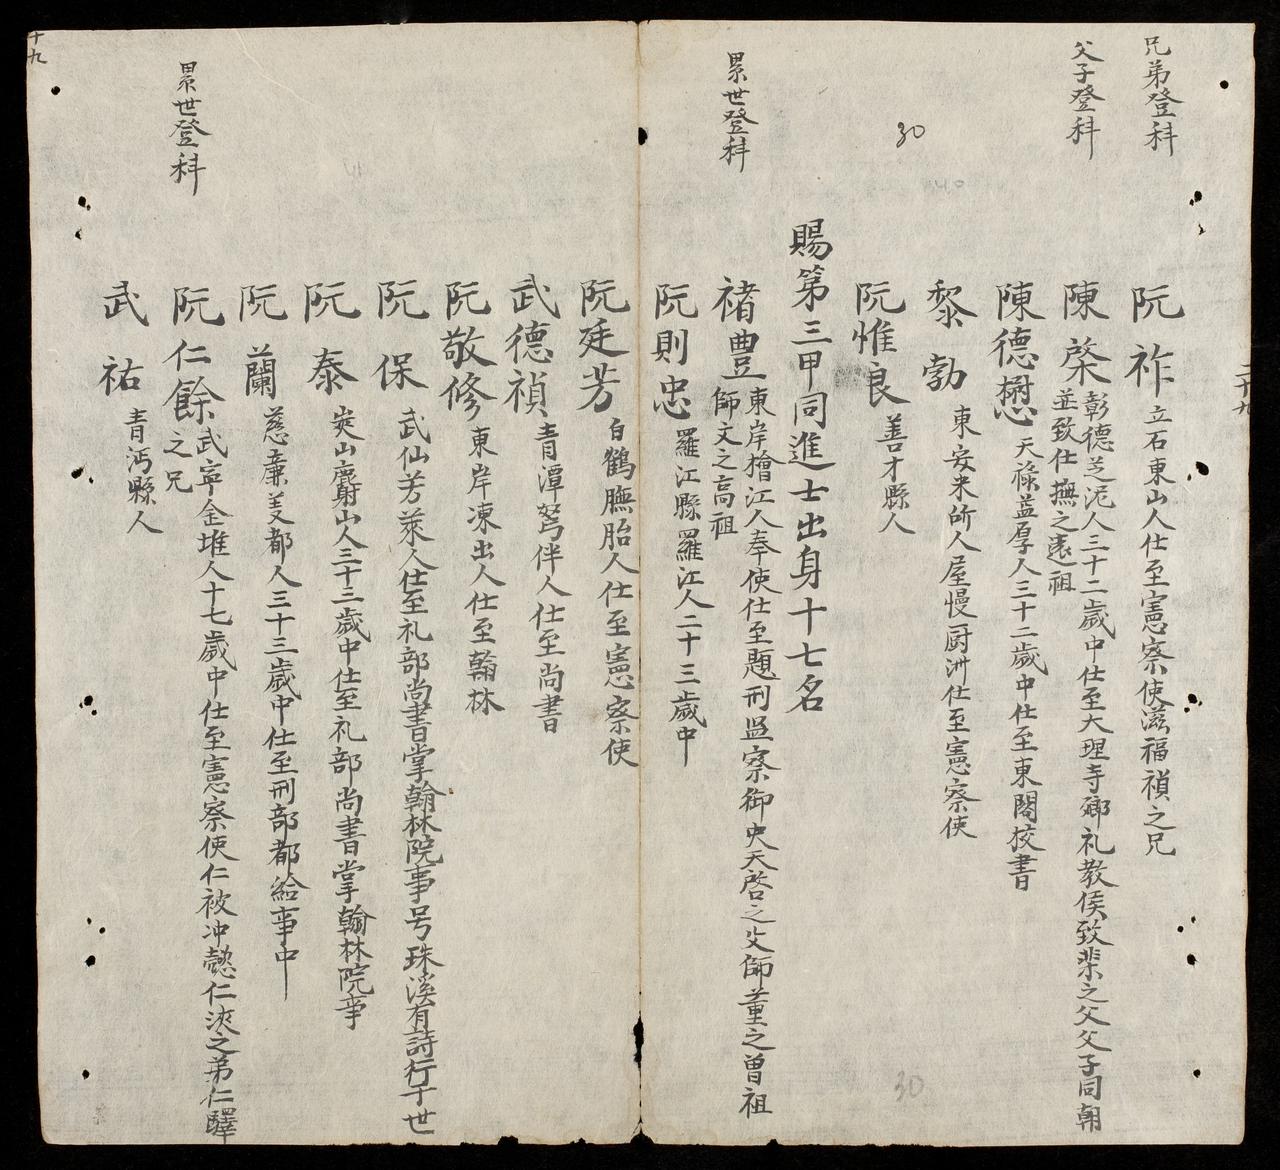 兄弟登科
阮祚立石東山人仕至憲察使滋福禎之兄
父子登科
陳棨彰德芝泥人三十二歲中仕至大理寺卿礼教侯致棐之父父子同朝
並致仕撫之遠祖
陳德懋天祿益厚人三十二歲中仕至東閣校書
黎勃東安来所人屋慢厨洲仕至憲察使
30
阮惟良善才縣人
賜第三甲同進士出身十七名
累世登科
褚豊東岸檜江人奉使仕至題刑监察御史天啓之父師董之曽祖
師文之高祖
阮則忠羅江縣羅江人二十三歲中
阮廷芳白鶴膴胎人仕至憲察使
武德禎青潭弩伴人仕至尚書
阮敬修東岸凍出人仕至翰林
阮保武仙芳萊人仕至礼部尚書掌翰林院事号珠溪有詩行于世
阮泰炎山麝山人三十三歲中仕至礼部尚書掌翰林院事
阮蘭慈廉美都人三十三歲中仕至刑部都給事中
累世登科
阮仁餘武寜金堆人十七歲中仕至憲察使仁被冲懿仁浹之弟仁驛
之兄
武祐青沔縣人
二十九
十九
30